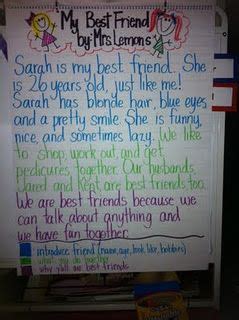 My Best Friend
by: Mrs. Lemons
Sarah is my best friend. She
is 26 years old, just like me!
Sarah has blonde hair, blue eyes
and a pretty smile. She is funny,
nice, and sometimes lazy. We like
to shop, work out, and get
pedicures together. Our husbands,
Jared and Kent, are best friends too.
We are best friends because we
can talk about anything and
we have fun together.
introduce friend (name, age, look like, hobbies)
what you do together
why y'all are best friends